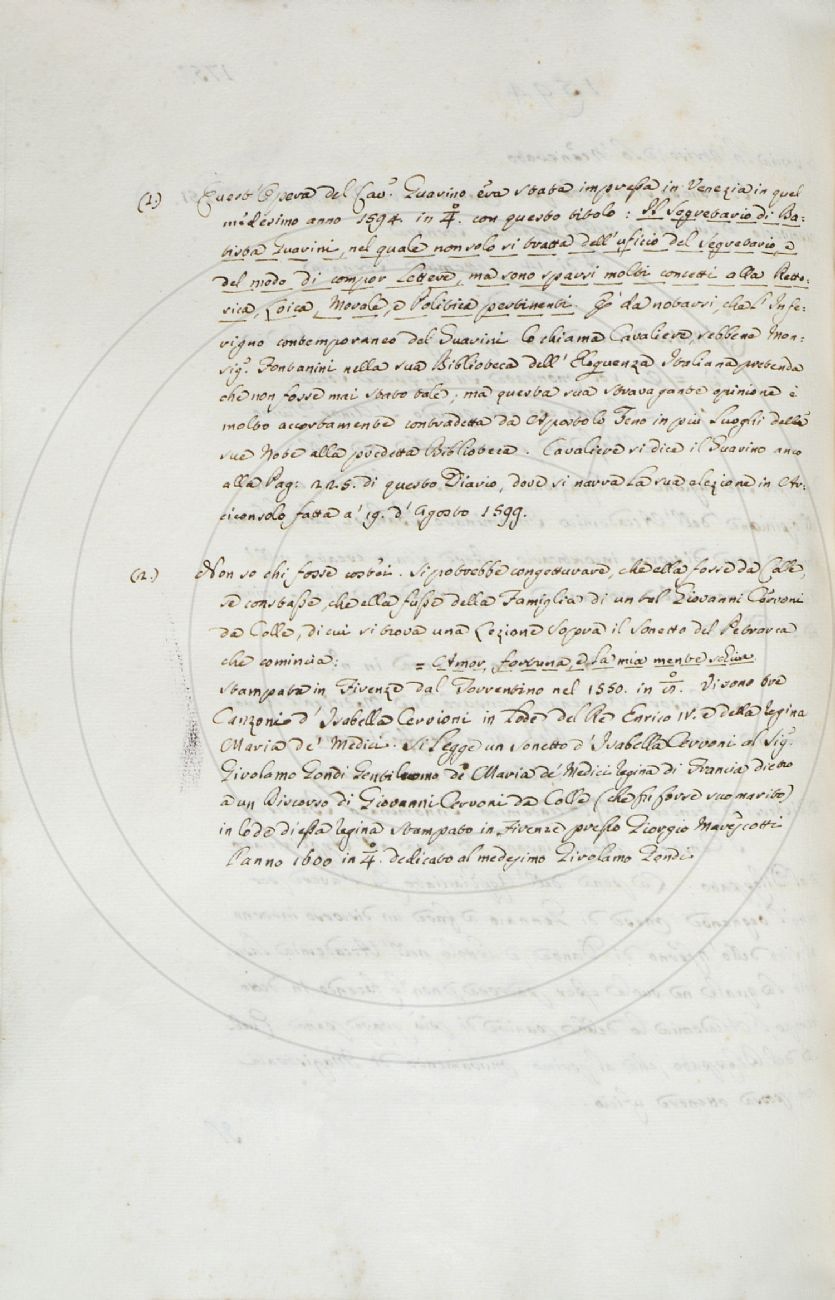 (1.) Quest'Opera del Cav.r Guarino era stata impressa in Venezia in quel
medesimo anno 1594. in 4.o con questo titolo: Il Segretario di Ba-
tista Guarini, nel quale non solo si tratta dell'uficio del segretario, e
del modo di compor Lettere, ma sono sparsi molti concetti alla Retto-
rica, Loica, Morale, e Politica pertinenti. È da notarsi, che l'Infe-
rigno contemporaneo del Guarini lo chiama Cavaliere, sebbene Mon-
sig.r Fontanini nella sua Biblioteca dell'Eloquenza Italiana pretenda
che non fosse mai stato tale; ma questa sua stravagante opinione è
molto accortamente contradetta da Apostolo Zeno in più Luoghi delle
sue Note alla predetta Biblioteca. Cavaliere si dice il Guarino anco
alla Pag: 225. di questo Diario, dove si narra la sua elezione in Ar-
ciconsolo fatta a' 19. d'Agosto 1599.
(2.) Non so chi fosse costei. Si potrebbe congetturare, che ella fosse da Colle,
se constasse, che ella fusse della Famiglia di un tal Giovanni Cervoni
da Colle, di cui si trova una Lezione sopra il sonetto del Petrarca
che comincia: = Amor, fortuna, e la mia mente schiva
stampata in Firenze dal Torrentino nel 1550. in 8.o Vi sono tre
Canzoni d'Isabella Cervioni in Lode del Re Enrico IV. e della Regina
Maria de' Medici. Si Legge un sonetto d'Isabella Cervoni al Sig.r
Girolamo Gondi Gentiluomo di Maria de' Medici Regina di Francia dietro
a un Discorso di Giovanni Cervoni da Colle (che fu forse suo marito)
in lode di essa Regina stampato in Firenze presso Giorgio Marescotti
l'anno 1600 in 4.o dedicato al medesimo Girolamo Gondi